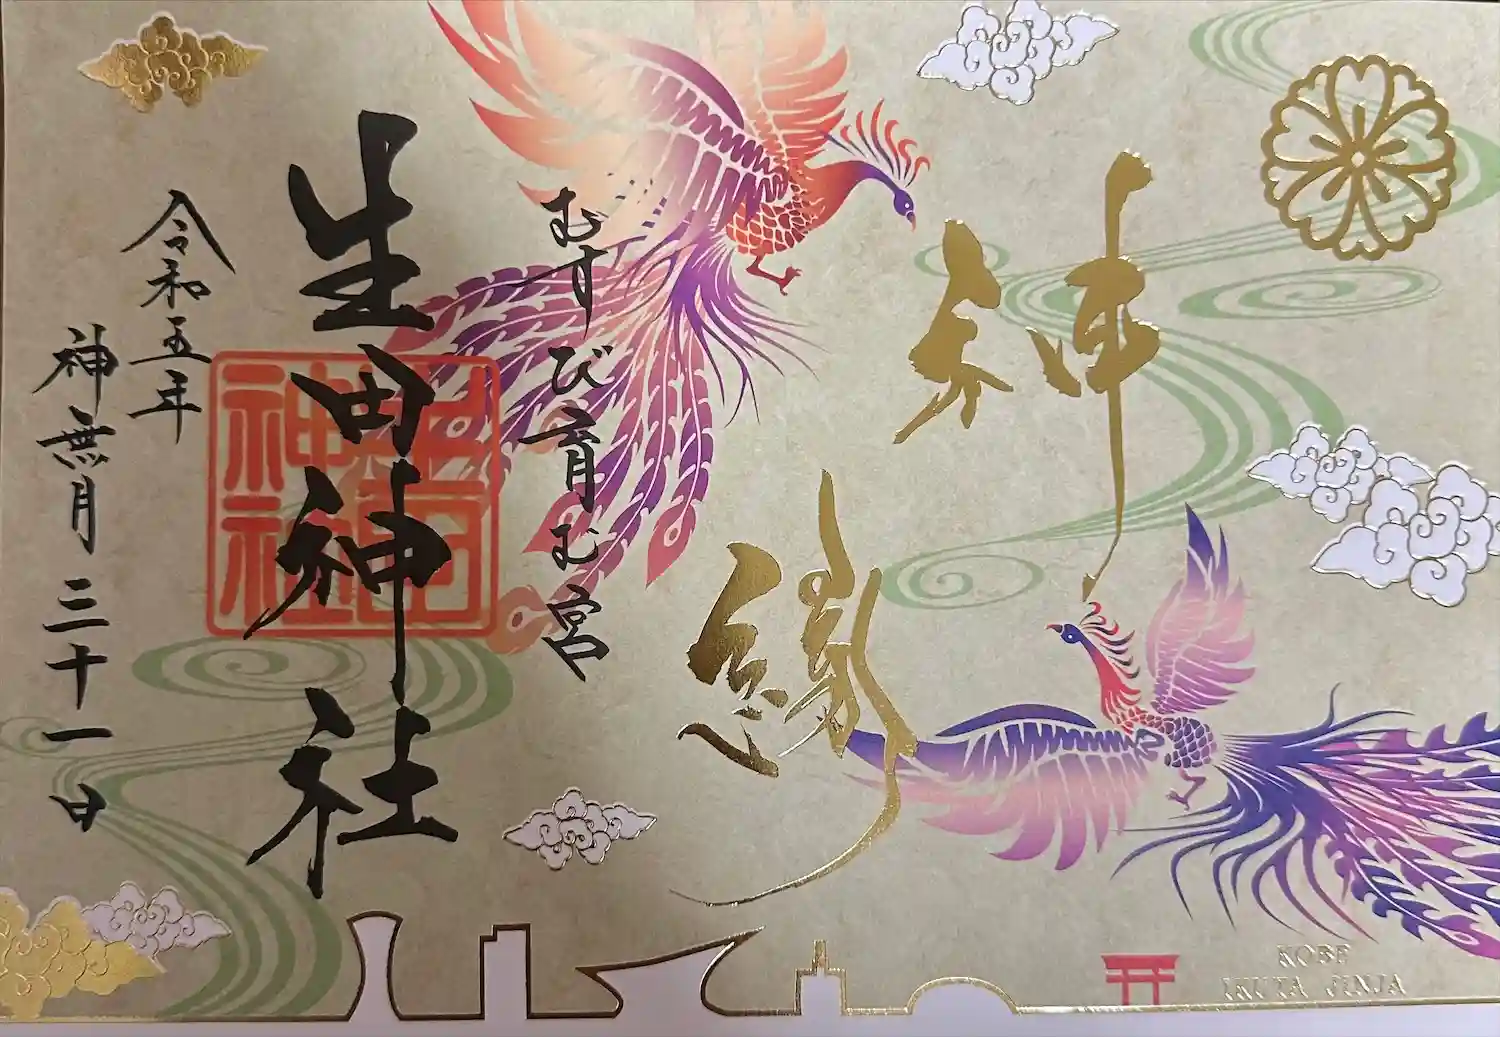 神
縁
むすび育む宮
生田神社
生田
神社
令和五年
神無月三十一日
KOBE
IKUTA JINJA